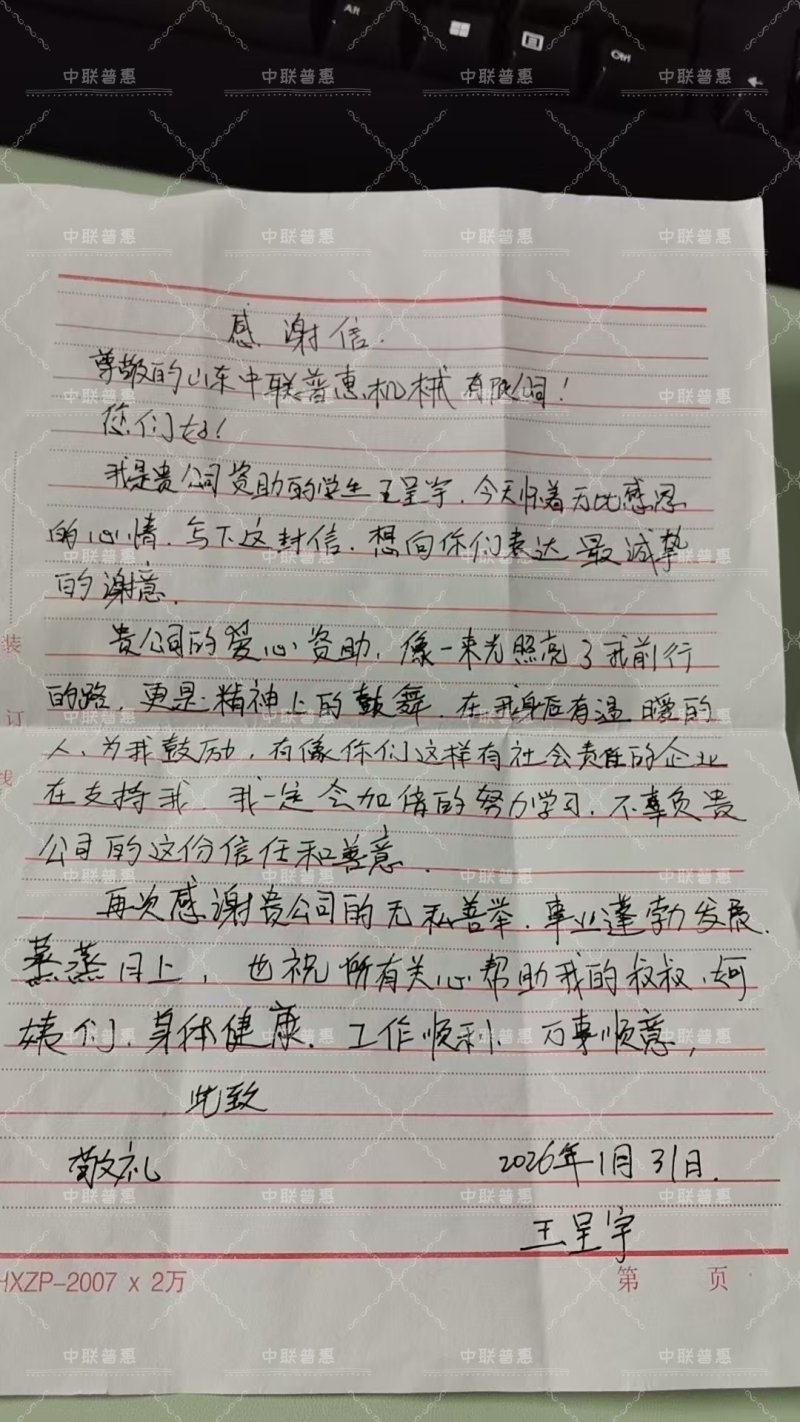 感谢信.
尊敬的山东中联普惠机械有限公司!
您们好!
我是贵公司资助的学生王呈宇.今天怀着无比感恩
的心情.写下这封信.想向你们表达最诚挚
的谢意.
贵公司的爱心资助.像一束光照亮了我前行
的路.更是精神上的鼓舞.在我身后有温暖的
人、为我鼓励,有像你们这样有社会责任的企业
在支持我.我一定会加倍的努力学习.不辜负贵
公司的这份信任和善意.
再次感谢贵公司的无私善举.事业蓬勃发展.
蒸蒸日上,也祝所有关心帮助我的叔叔、阿
姨们.身体健康.工作顺利.万事顺意,
此致
敬礼
2026年1月31日.
王呈宇
装
订
线
HXZP-2007 x 2万
第 页
AR
Ctrl
中联普惠